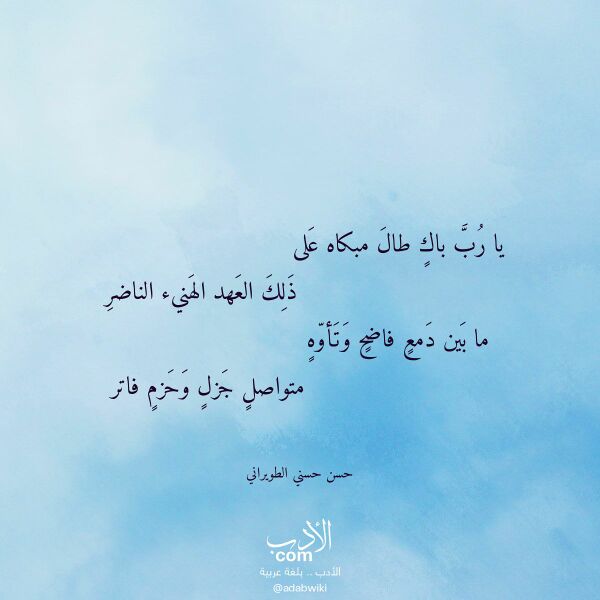 يا رُبَّ باكٍ طالَ مبكاه عَلى
ذَلِكَ العَهد الهَنيء الناضرِ
ما بَين دَمعٍ فاضحٍ وَتَأوّهٍ
متواصلٍ جَزلٍ وَحَزمٍ فاتر
حسن حسني الطويراني
الأدب
com
الأدب .. بلغة عربية
@adabwiki